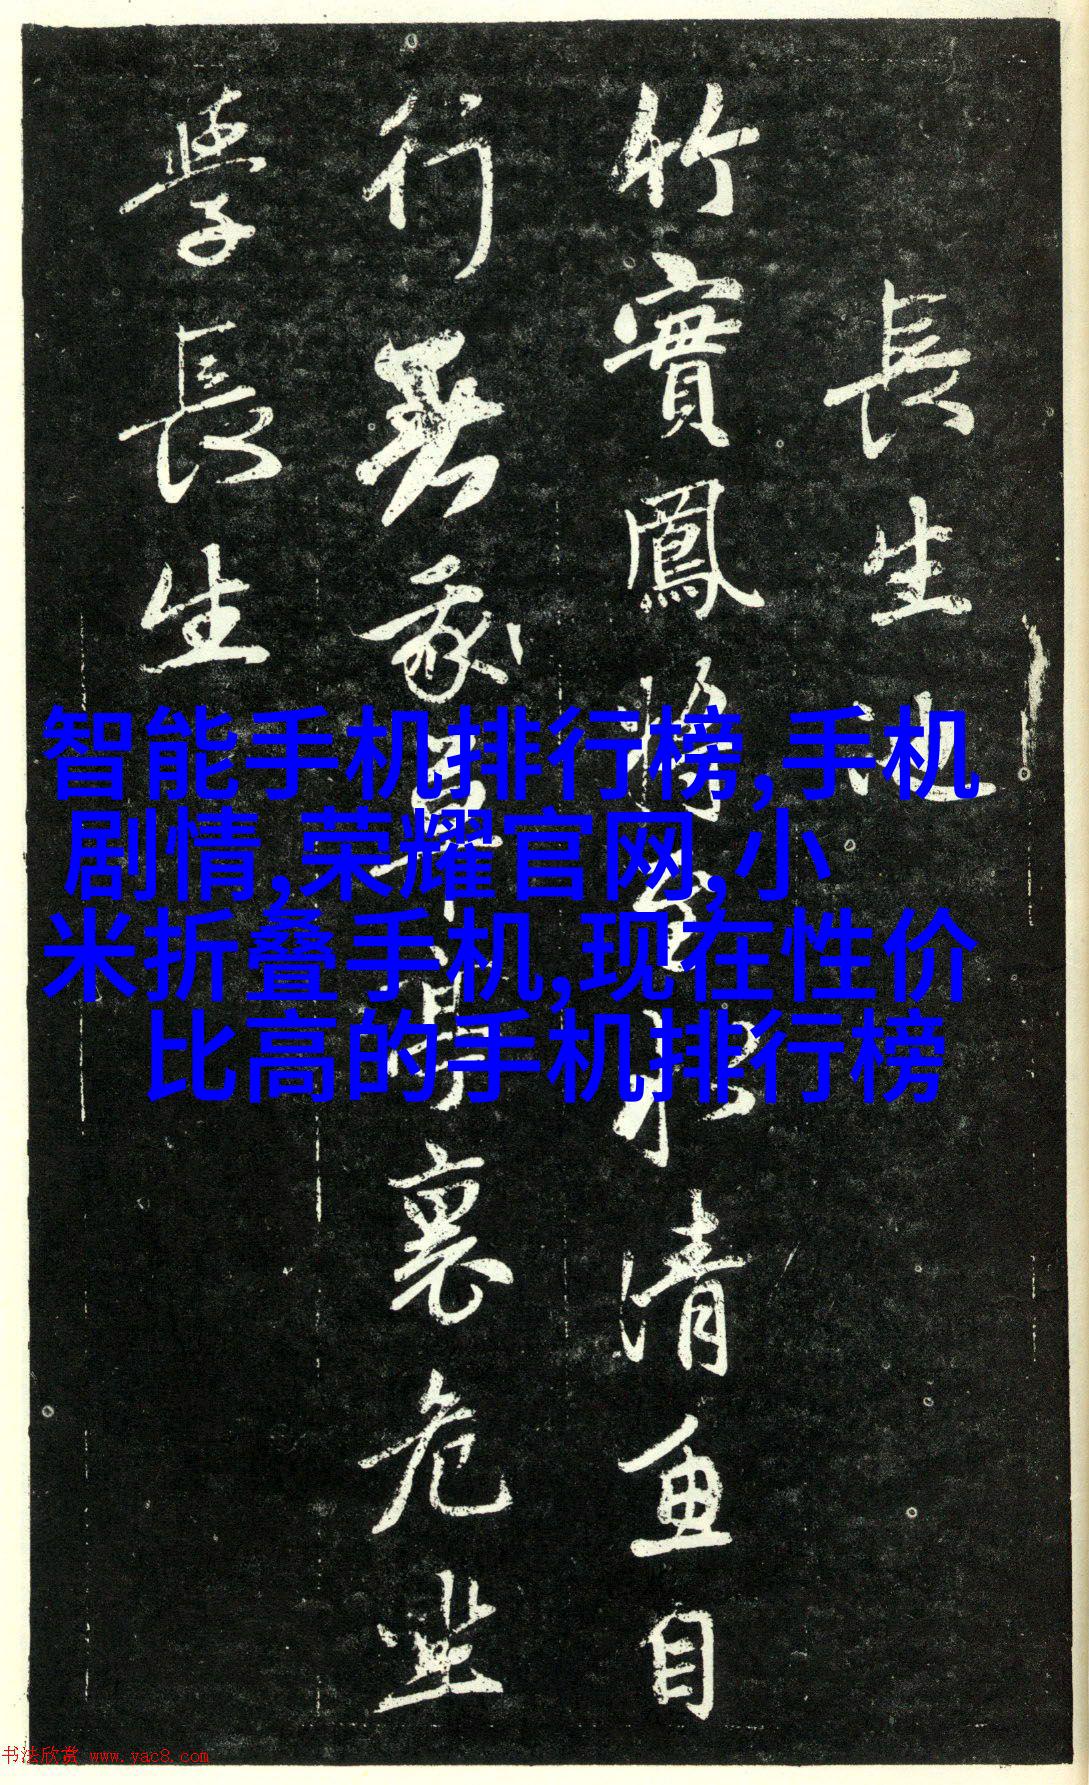 長生池
竹實鳳將水清魚自
行裏危坐
學長生
智能手机排行榜,手机
剧情,荣耀官网,小
米折叠手机,现在性价
比高的手机排行榜
书法欣赏 www.yac8.com